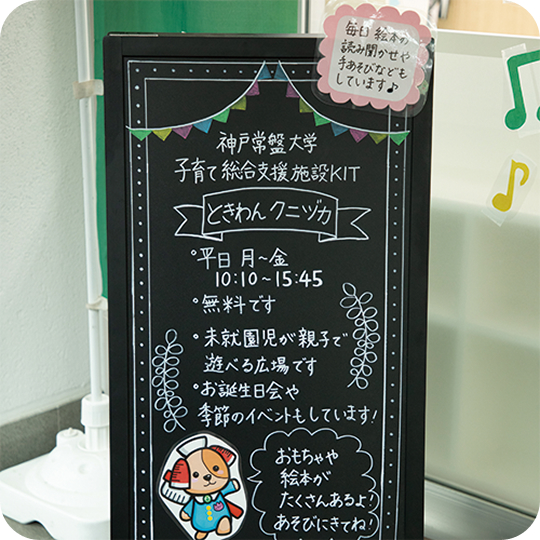 毎日 絵本の
読み聞かせや
手あそびなども
しています♪
神戸常盤大学
子育て総合支援施設KIT
ときわんクニヅカ
°平日 月~金
10:10~15:45
°無料です
•未就園児が親子で
遊べる広場です
•お誕生日会や
季節のイベントもしています!
おもちゃや
絵本が
たくさんあるよ!
あそびにきてね!